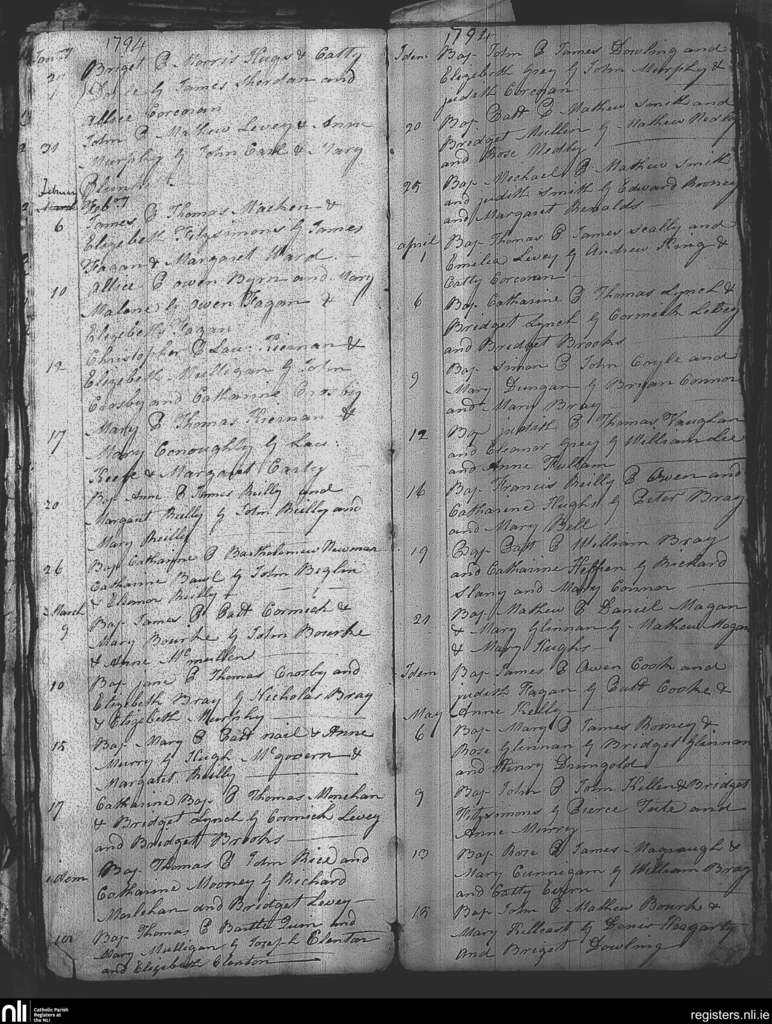 1794
Jan:y
Briget P Norris Hugs & Catty
by James Sherdan and
Allice Corcoran
31 John P Mathew Levey & Anne
Murphy by John Earl & Mary
Plunket
Feb:y
6 James P Thomas Macken &
Elizebeth Fitzsimons by James
Fagan & Margaret Ward
10 Allice P Owen Byrn and Mary
Malone by Owen Fagan &
Elizebeth Fagan
12 Christopher P Lau: Kiernan &
Elizebeth Mulligan by John
Crosby and Catharine Crosby
17 Mary P Thomas Kiernan &
Mary Conoughty by Lau:
Keefe & Margaret Carty
20 Bap Anne P James Reilly and
Margaret Reilly by John Reilly and
Mary Reilly
26 Bap Catharine P Bartholomew Newman
Catharine Bawl by John Beglin
& Eleanor Reilly
March
9 Bap James P Patt Cormick &
Mary Bourke by John Bourke
& Anne Mc mullen
10 Bap jane P Thomas Crosby and
Elizebeth Bray by Nicholas Bray
& Elizebeth Murphy
15 Bap Mary P Patt nail & Anne
Murry by Hugh Mcgovern &
Margaret Reilly
17 Catharine Bap P Thomas Monehan
& Bridget Lynch by Cormick Levey
and Bridget Brooks
idem Bap Thomas P John Rice and
Catharine Mooney by Richard
Malehan and Bridget Levey
Bap Thomas P Bartle Quin and
Mary Mulligan by Joseph Clenton
and Elizebeth Clenton
1794
Idem Bap John P James Dowling and
Elizebeth Grey by John Murphy &
judeth Corcoran
20 Bap Patt P Mathew Smith and
Bredget Mullen by Mathew Medby
and Rose Medby
25 Bap Mechael P Mathew Smith
and judeth Smith by Edward Rooney
and Margaret Renalds
april
1 Bap Thomas P James Scally and
Emelia Levey by Andrew King &
Catty Corcoran
6 Bap Catharine P Thomas Lynch &
Bridget Lynch by Cormick Levey
and Bridget Brooks
9 Bap Simon P John Coyle and
Mary Dungan by Bryan Connor
and Mary Bray
12 Bap judeth P Thomas Vaughan
and Eleanor Grey by William Lee
and Anne Hullam
16 Bap Francis Reilly P Owen and
Catharine Hughs by Peter Bray
and Mary Bell
19 Bap Patt P William Bray
and Catharine Heffern by Richard
Slany and Mary Connor
21 Bap Mathew P Daniel Magan
& Mary Glennan by Mathew Magan
& Mary Hughs
Idem Bap James P Owen Cook and
judeth Fagan by Patt Cooke &
Anne Kelly
May
6 Bap Mary P James Rooney &
Rose Glennan by Bridget Glennan
and Henry Drumgold
9 Bap John P John Kellen & Bridget
Fitzsimons by Pierce Tuite and
Anne Murrey
13 Bap Rose P James Magraugh &
Mary Cunnigan by William Bray
and Catty Quinn
15 Bap John P Mathew Bourke &
Mary Killeast by Denis Heagarty
and Briget Dowling
nli
Catholic Parish
Registers at
the NLI
registers.nli.ie